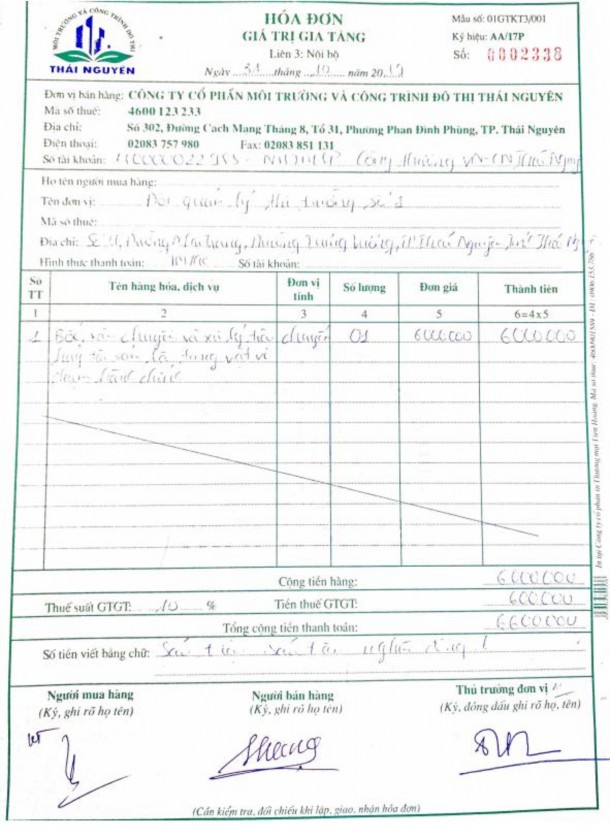 MÔI TRƯỜNG VÀ CÔNG TRÌNH ĐÔ THỊ
THÁI NGUYÊN
HÓA ĐƠN
GIÁ TRỊ GIA TĂNG
Liên 3: Nội bộ
Ngày 31 tháng 10 năm 2017
Mẫu số: 01GTKT3/001
Ký hiệu: AA/17P
Số: 0002338
Đơn vị bán hàng: CÔNG TY CỔ PHẦN MÔI TRƯỜNG VÀ CÔNG TRÌNH ĐÔ THỊ THÁI NGUYÊN
Mã số thuế: 4600 123 233
Địa chỉ: Số 302, Đường Cách Mạng Tháng 8, Tổ 31, Phường Phan Đình Phùng, TP. Thái Nguyên
Điện thoại: 02083 757 980 Fax: 02083 851 131
Số tài khoản: Công thương VN-CN Thái Nguyên
Họ tên người mua hàng:
Tên đơn vị: Đội quản lý thị trường số 1
Mã số thuế:
Địa chỉ: Phường Trưng Vương, TP Thái Nguyên, Tỉnh Thái Nguyên
Hình thức thanh toán: TM/CK Số tài khoản:
Số TT Tên hàng hóa, dịch vụ Đơn vị tính Số lượng Đơn giá Thành tiền
1 2 3 4 5 6=4x5
1 Bốc, vận chuyển và xử lý tiêu chuyến 01 6000000 6000000
hủy tài sản là tang vật vi
phạm hành chính
Cộng tiền hàng: 6000000
Thuế suất GTGT: 10 % Tiền thuế GTGT: 600000
Tổng cộng tiền thanh toán: 6600000
Số tiền viết bằng chữ: Sáu triệu sáu trăm nghìn đồng
Người mua hàng Người bán hàng Thủ trưởng đơn vị
(Ký, ghi rõ họ tên) (Ký, ghi rõ họ tên) (Ký, đóng dấu ghi rõ họ, tên)
(Cần kiểm tra, đối chiếu khi lập, giao, nhận hóa đơn)